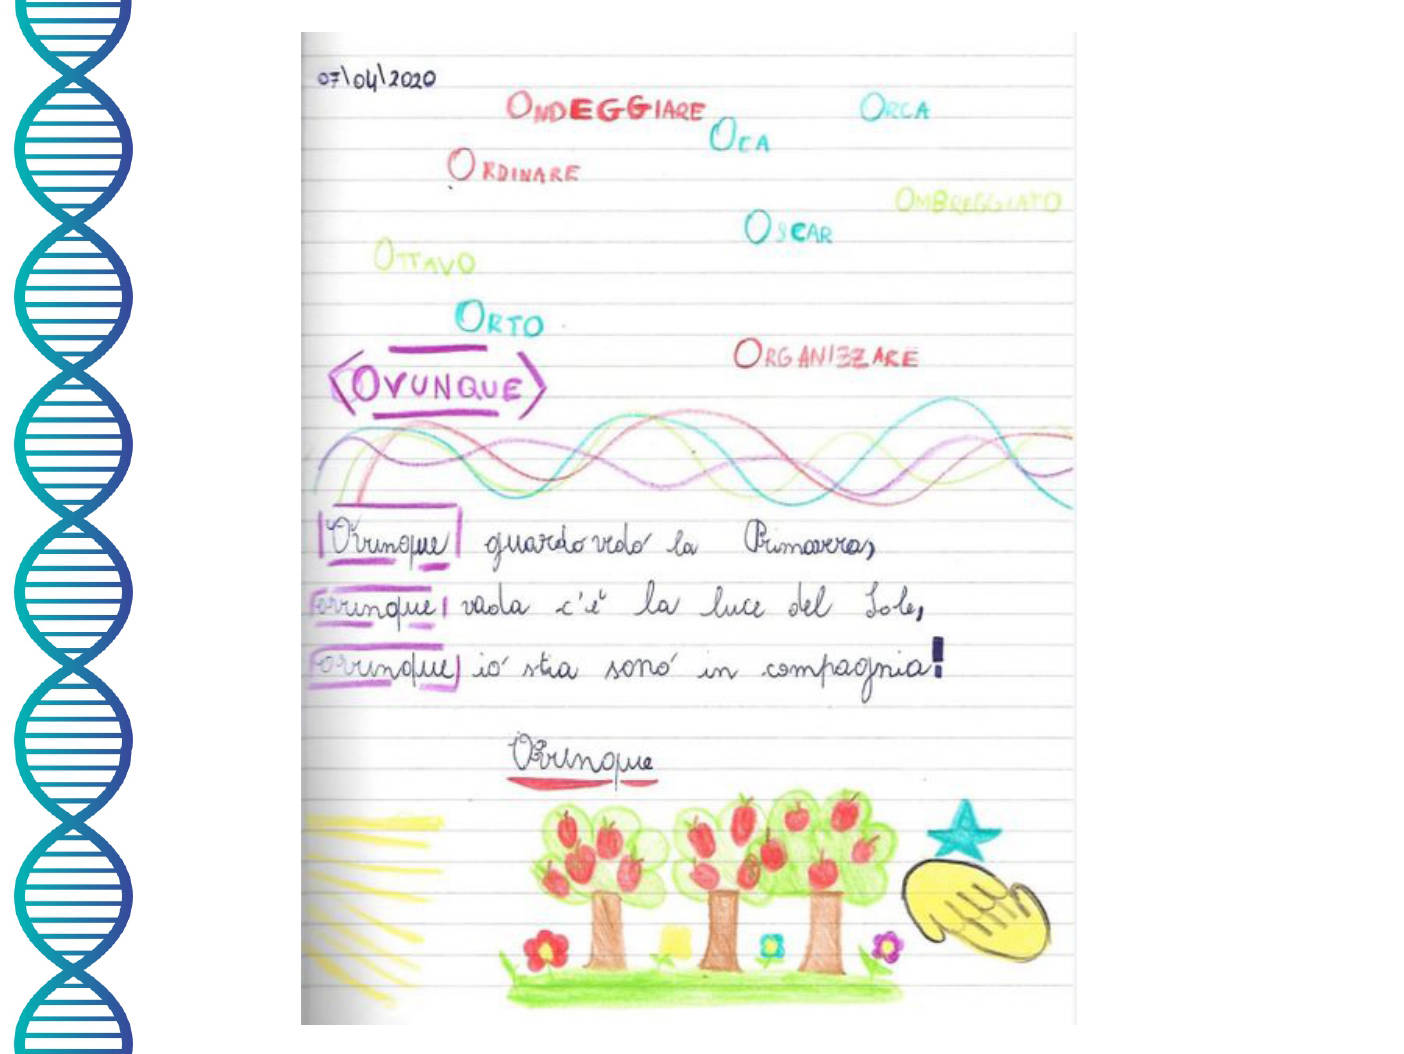 07\04\2020
ONDEGGIARE
ORCA
OCA
ORDINARE
OMBREGGIATO
OSCAR
OTTAVO
ORTO
ORGANIZZARE
<OVUNQUE>
Ovunque guardo vedo la Primavera,
ovunque vada c'è la luce del Sole,
ovunque io stia sono in compagnia!
Ovunque